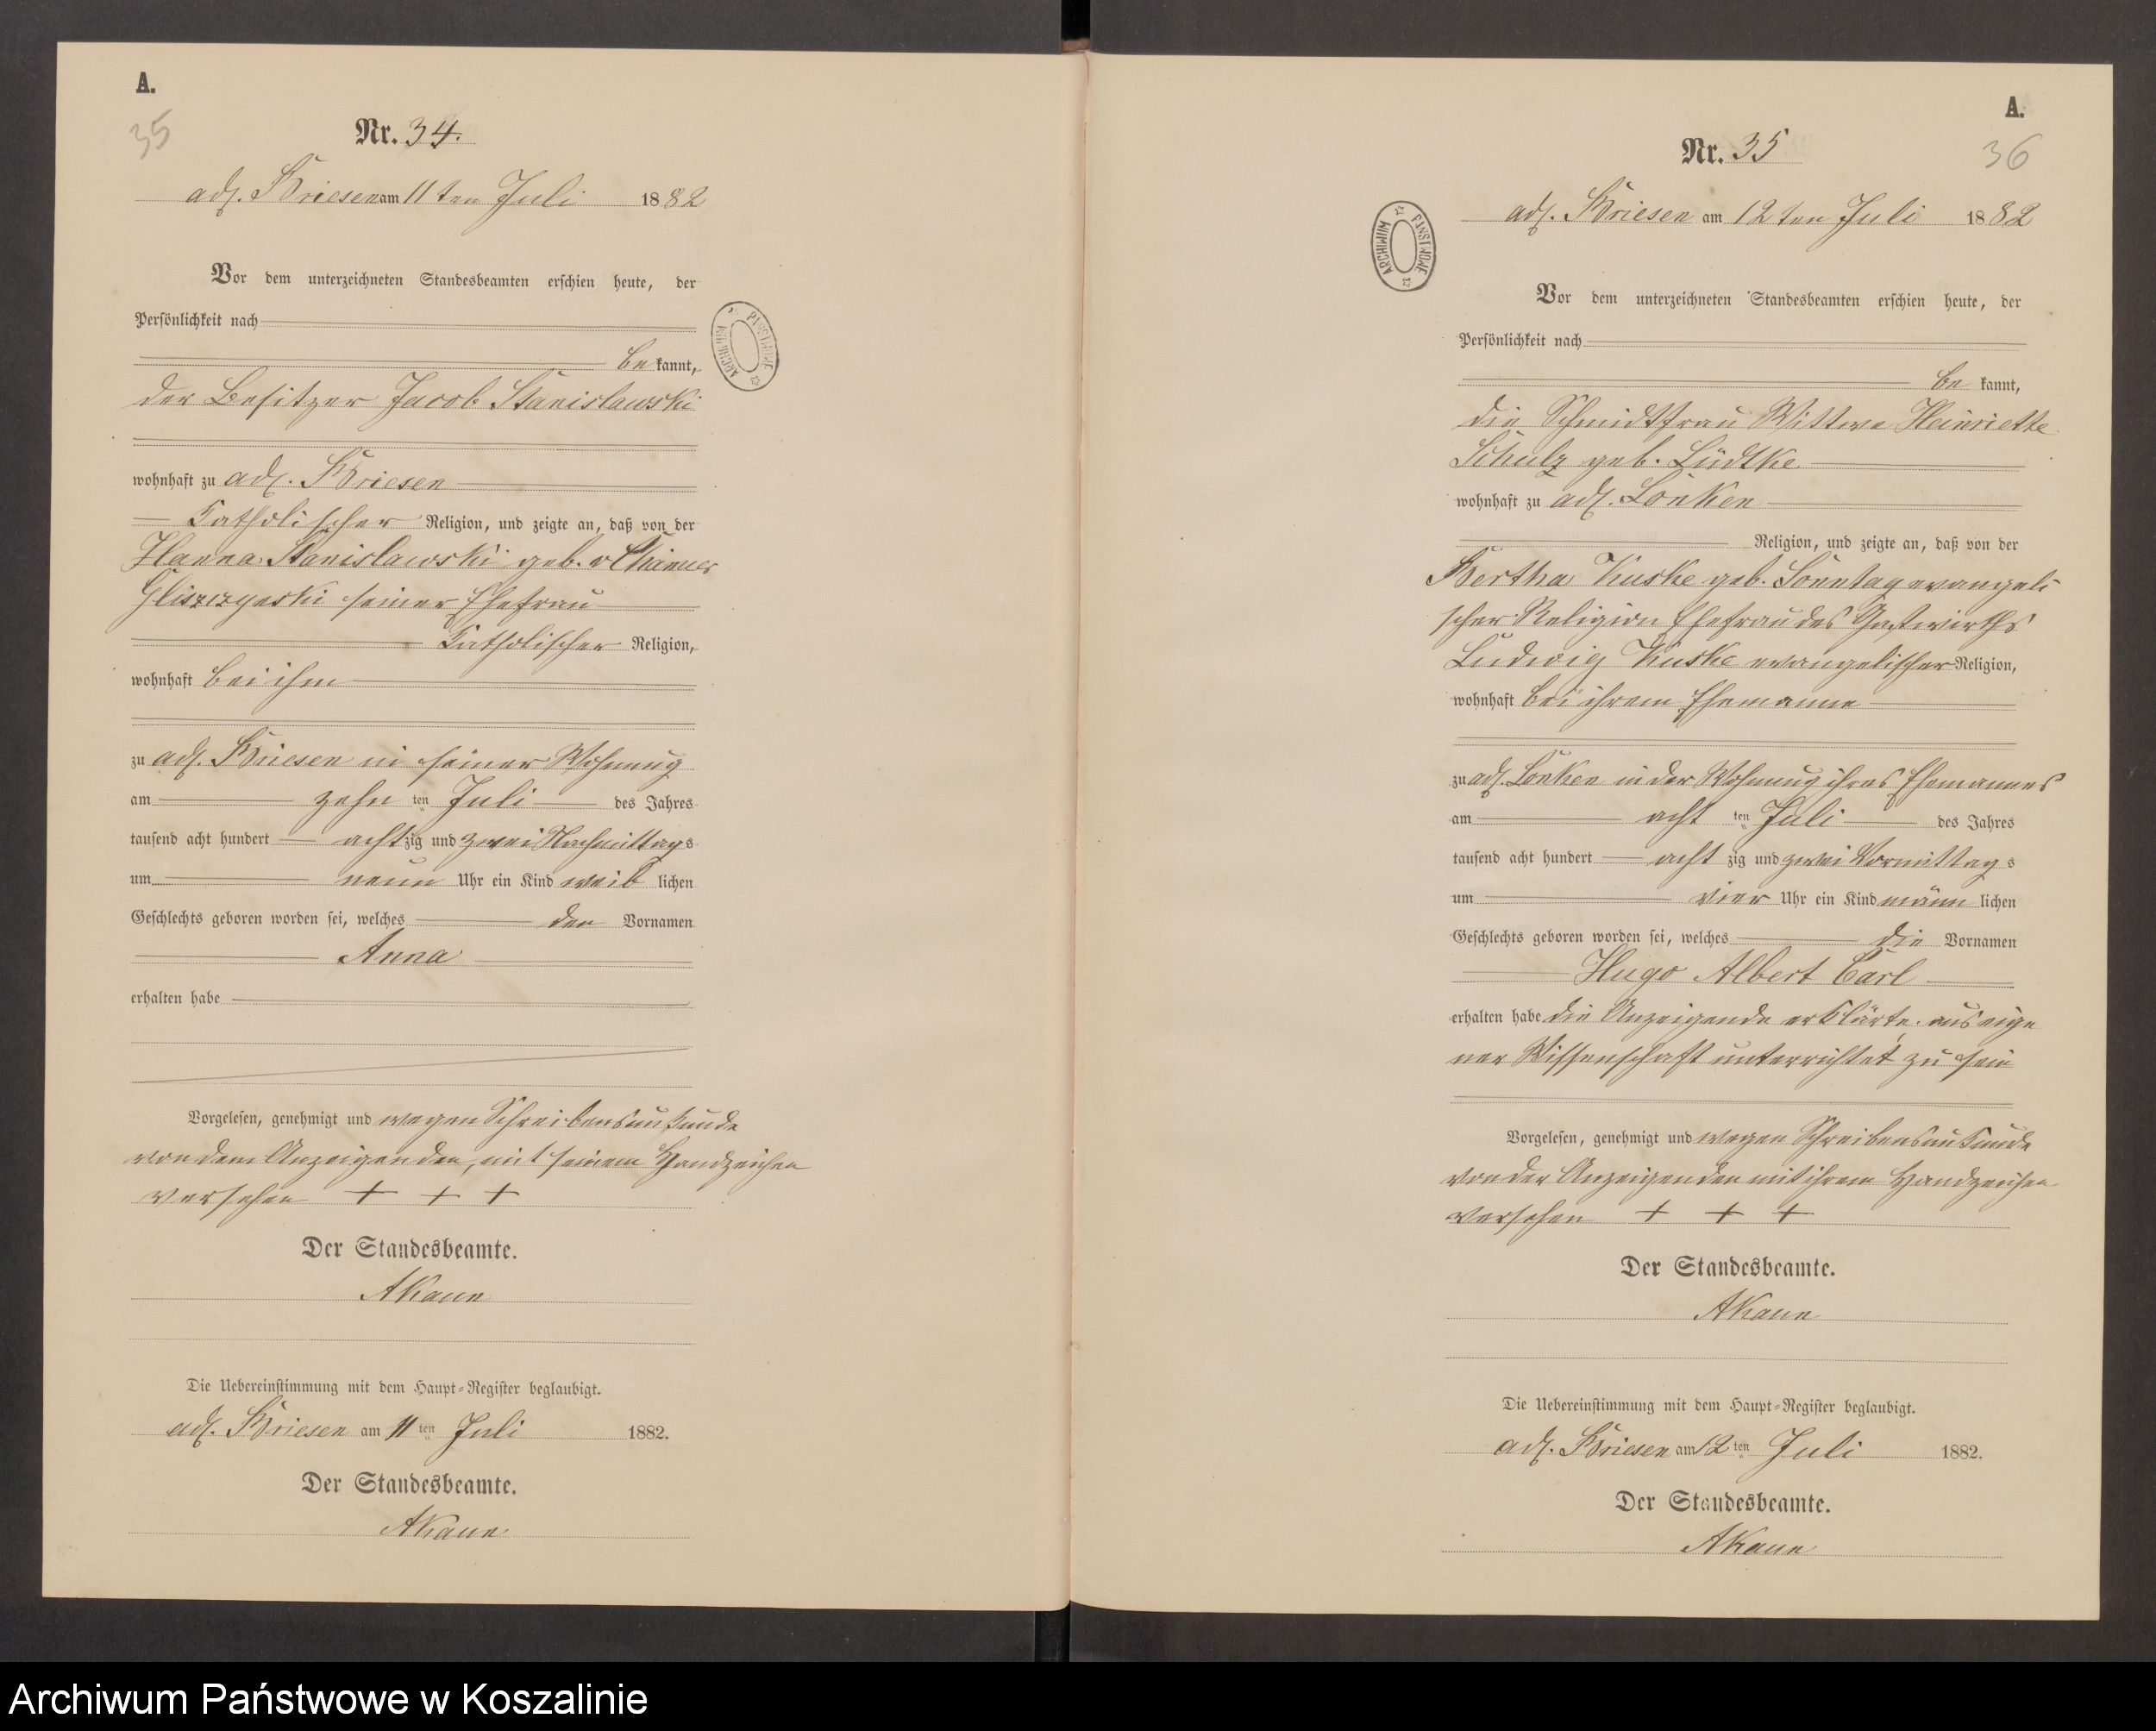 A.
35
Nr. 34.
adl. Briesen am 11 ten Juli 1882
Vor dem unterzeichneten Standesbeamten erschien heute, der
Persönlichkeit nach
be kannt,
der Besitzer Jacob Stanislawski
wohnhaft zu adl. Briesen
Katholischer Religion, und zeigte an, daß von der
Hanna Stanislawski geb. v
seiner Ehefrau
Katholischer Religion,
wohnhaft bei ihm
zu adl. Briesen in seiner Wohnung
am zehn ten Juli des Jahres
tausend acht hundert achtzig und zwei Nachmittags
um neun Uhr ein Kind weib lichen
Geschlechts geboren worden sei, welches den Vornamen
Anna
erhalten habe
Vorgelesen, genehmigt und wegen Schreibensunkunde
von dem Anzeigenden, mit seinem Handzeichen
versehen + + +
Der Standesbeamte.
AKaun
Die Uebereinstimmung mit dem Haupt-Register beglaubigt.
adl. Briesen am 11 ten Juli 1882.
Der Standesbeamte.
AKaun
ARCHIWUM PAŃSTWOWE
A.
36
Nr. 35
adl. Briesen am 12 ten Juli 1882
ARCHIWUM PAŃSTWOWE
Vor dem unterzeichneten Standesbeamten erschien heute, der
Persönlichkeit nach
be kannt,
die Schmidtfrau Wittwe Heinriette
Schulz geb. Lüdtke
wohnhaft zu adl. Lonken
Religion, und zeigte an, daß von der
Bertha Kuske geb. Sonntag evangeli
scher Religion Ehefrau des Gastwirths
Ludwig Kuske evangelischer Religion,
wohnhaft bei ihrem Ehemanne
zu adl. Lonken in der Wohnung ihres Ehemannes
am acht ten Juli des Jahres
tausend acht hundert acht zig und zwei Vormittags
um vier Uhr ein Kind männ lichen
Geschlechts geboren worden sei, welches die Vornamen
Hugo Albert Carl
erhalten habe die Anzeigende erklärte, aus eige
ner Wissenschaft unterrichtet zu sein
Vorgelesen, genehmigt und wegen Schreibensunkunde
von der Anzeigenden mit ihrem Handzeichen
versehen + + +
Der Standesbeamte.
AKaun
Die Uebereinstimmung mit dem Haupt-Register beglaubigt.
adl. Briesen am 12 ten Juli 1882.
Der Standesbeamte.
AKaun
Archiwum Państwowe w Koszalinie